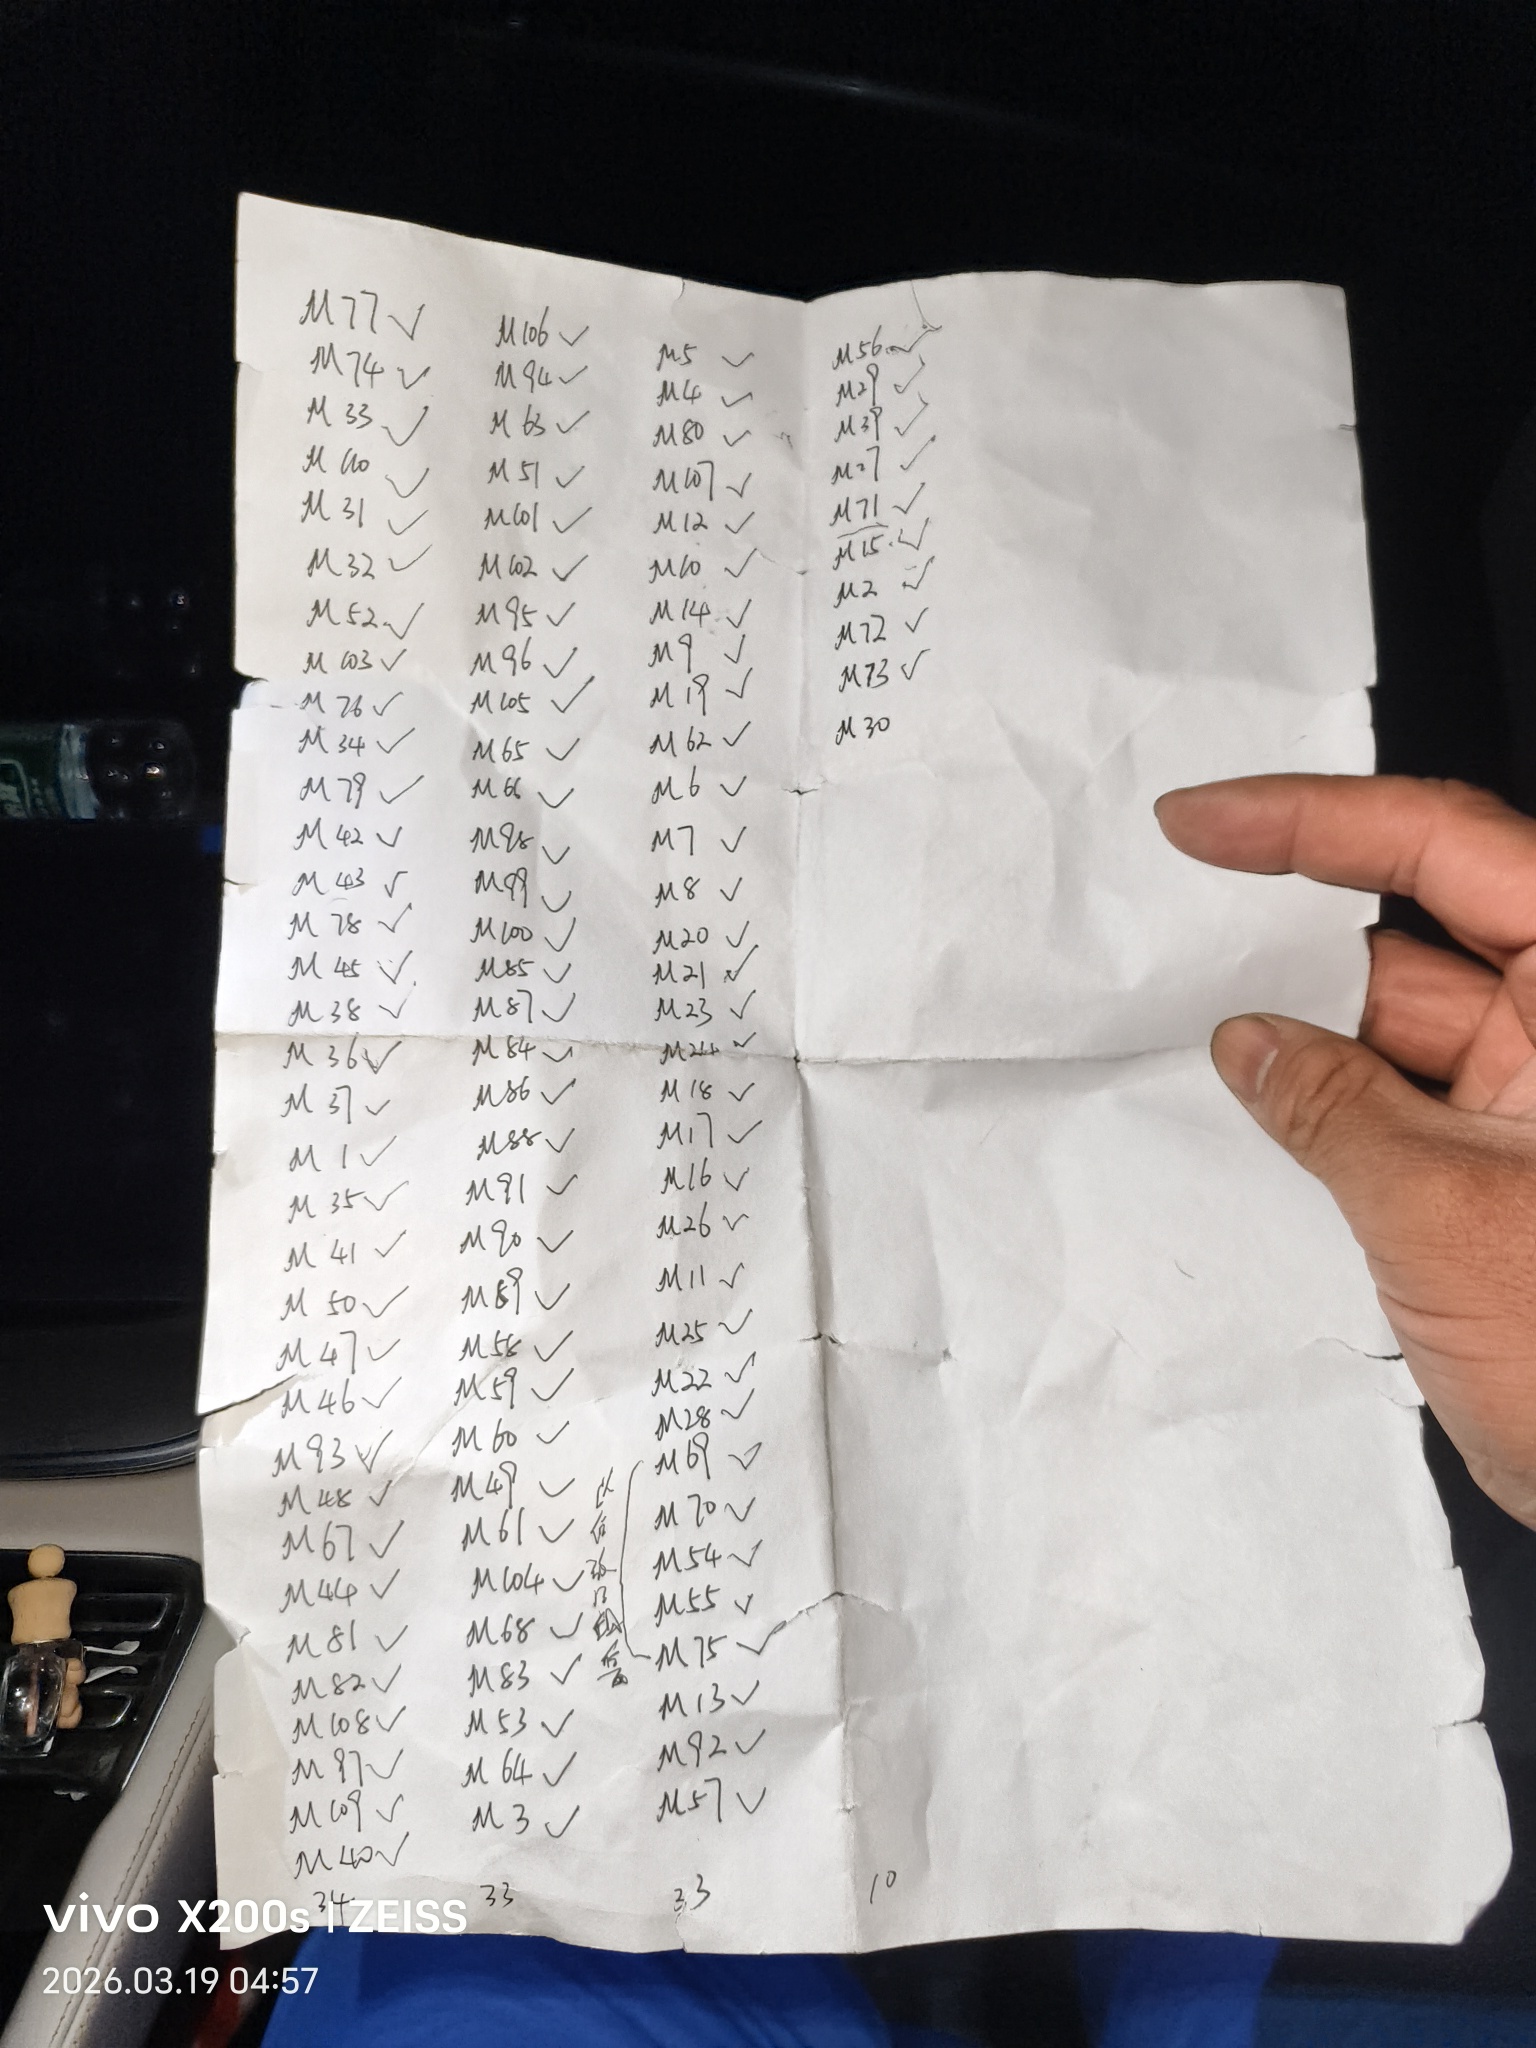 M77 ✓
M74 ✓
M33 ✓
M110 ✓
M31 ✓
M32 ✓
M52 ✓
M103 ✓
M76 ✓
M34 ✓
M79 ✓
M42 ✓
M43 ✓
M78 ✓
M45 ✓
M38 ✓
M36 ✓
M37 ✓
M1 ✓
M35 ✓
M41 ✓
M50 ✓
M47 ✓
M46 ✓
M93 ✓
M48 ✓
M67 ✓
M44 ✓
M81 ✓
M82 ✓
M108 ✓
M97 ✓
M109 ✓
M40 ✓
34
M106 ✓
M94 ✓
M63 ✓
M51 ✓
M101 ✓
M102 ✓
M95 ✓
M96 ✓
M105 ✓
M65 ✓
M66 ✓
M98 ✓
M99 ✓
M100 ✓
M85 ✓
M87 ✓
M84 ✓
M86 ✓
M88 ✓
M91 ✓
M90 ✓
M89 ✓
M58 ✓
M59 ✓
M60 ✓
M49 ✓
M61 ✓
M104 ✓
M68 ✓
M83 ✓
M53 ✓
M64 ✓
M3 ✓
33
以后
M5 ✓
M4 ✓
M80 ✓
M107 ✓
M12 ✓
M10 ✓
M14 ✓
M9 ✓
M19 ✓
M62 ✓
M6 ✓
M7 ✓
M8 ✓
M20 ✓
M21 ✓
M23 ✓
M24 ✓
M18 ✓
M17 ✓
M16 ✓
M26 ✓
M11 ✓
M25 ✓
M22 ✓
M28 ✓
M69 ✓
M70 ✓
M54 ✓
M55 ✓
M75 ✓
M13 ✓
M92 ✓
M57 ✓
33
M56 ✓
M29 ✓
M39 ✓
M27 ✓
M71 ✓
M15 ✓
M2 ✓
M72 ✓
M73 ✓
M30
10
vivo X200s | ZEISS
2026.03.19 04:57